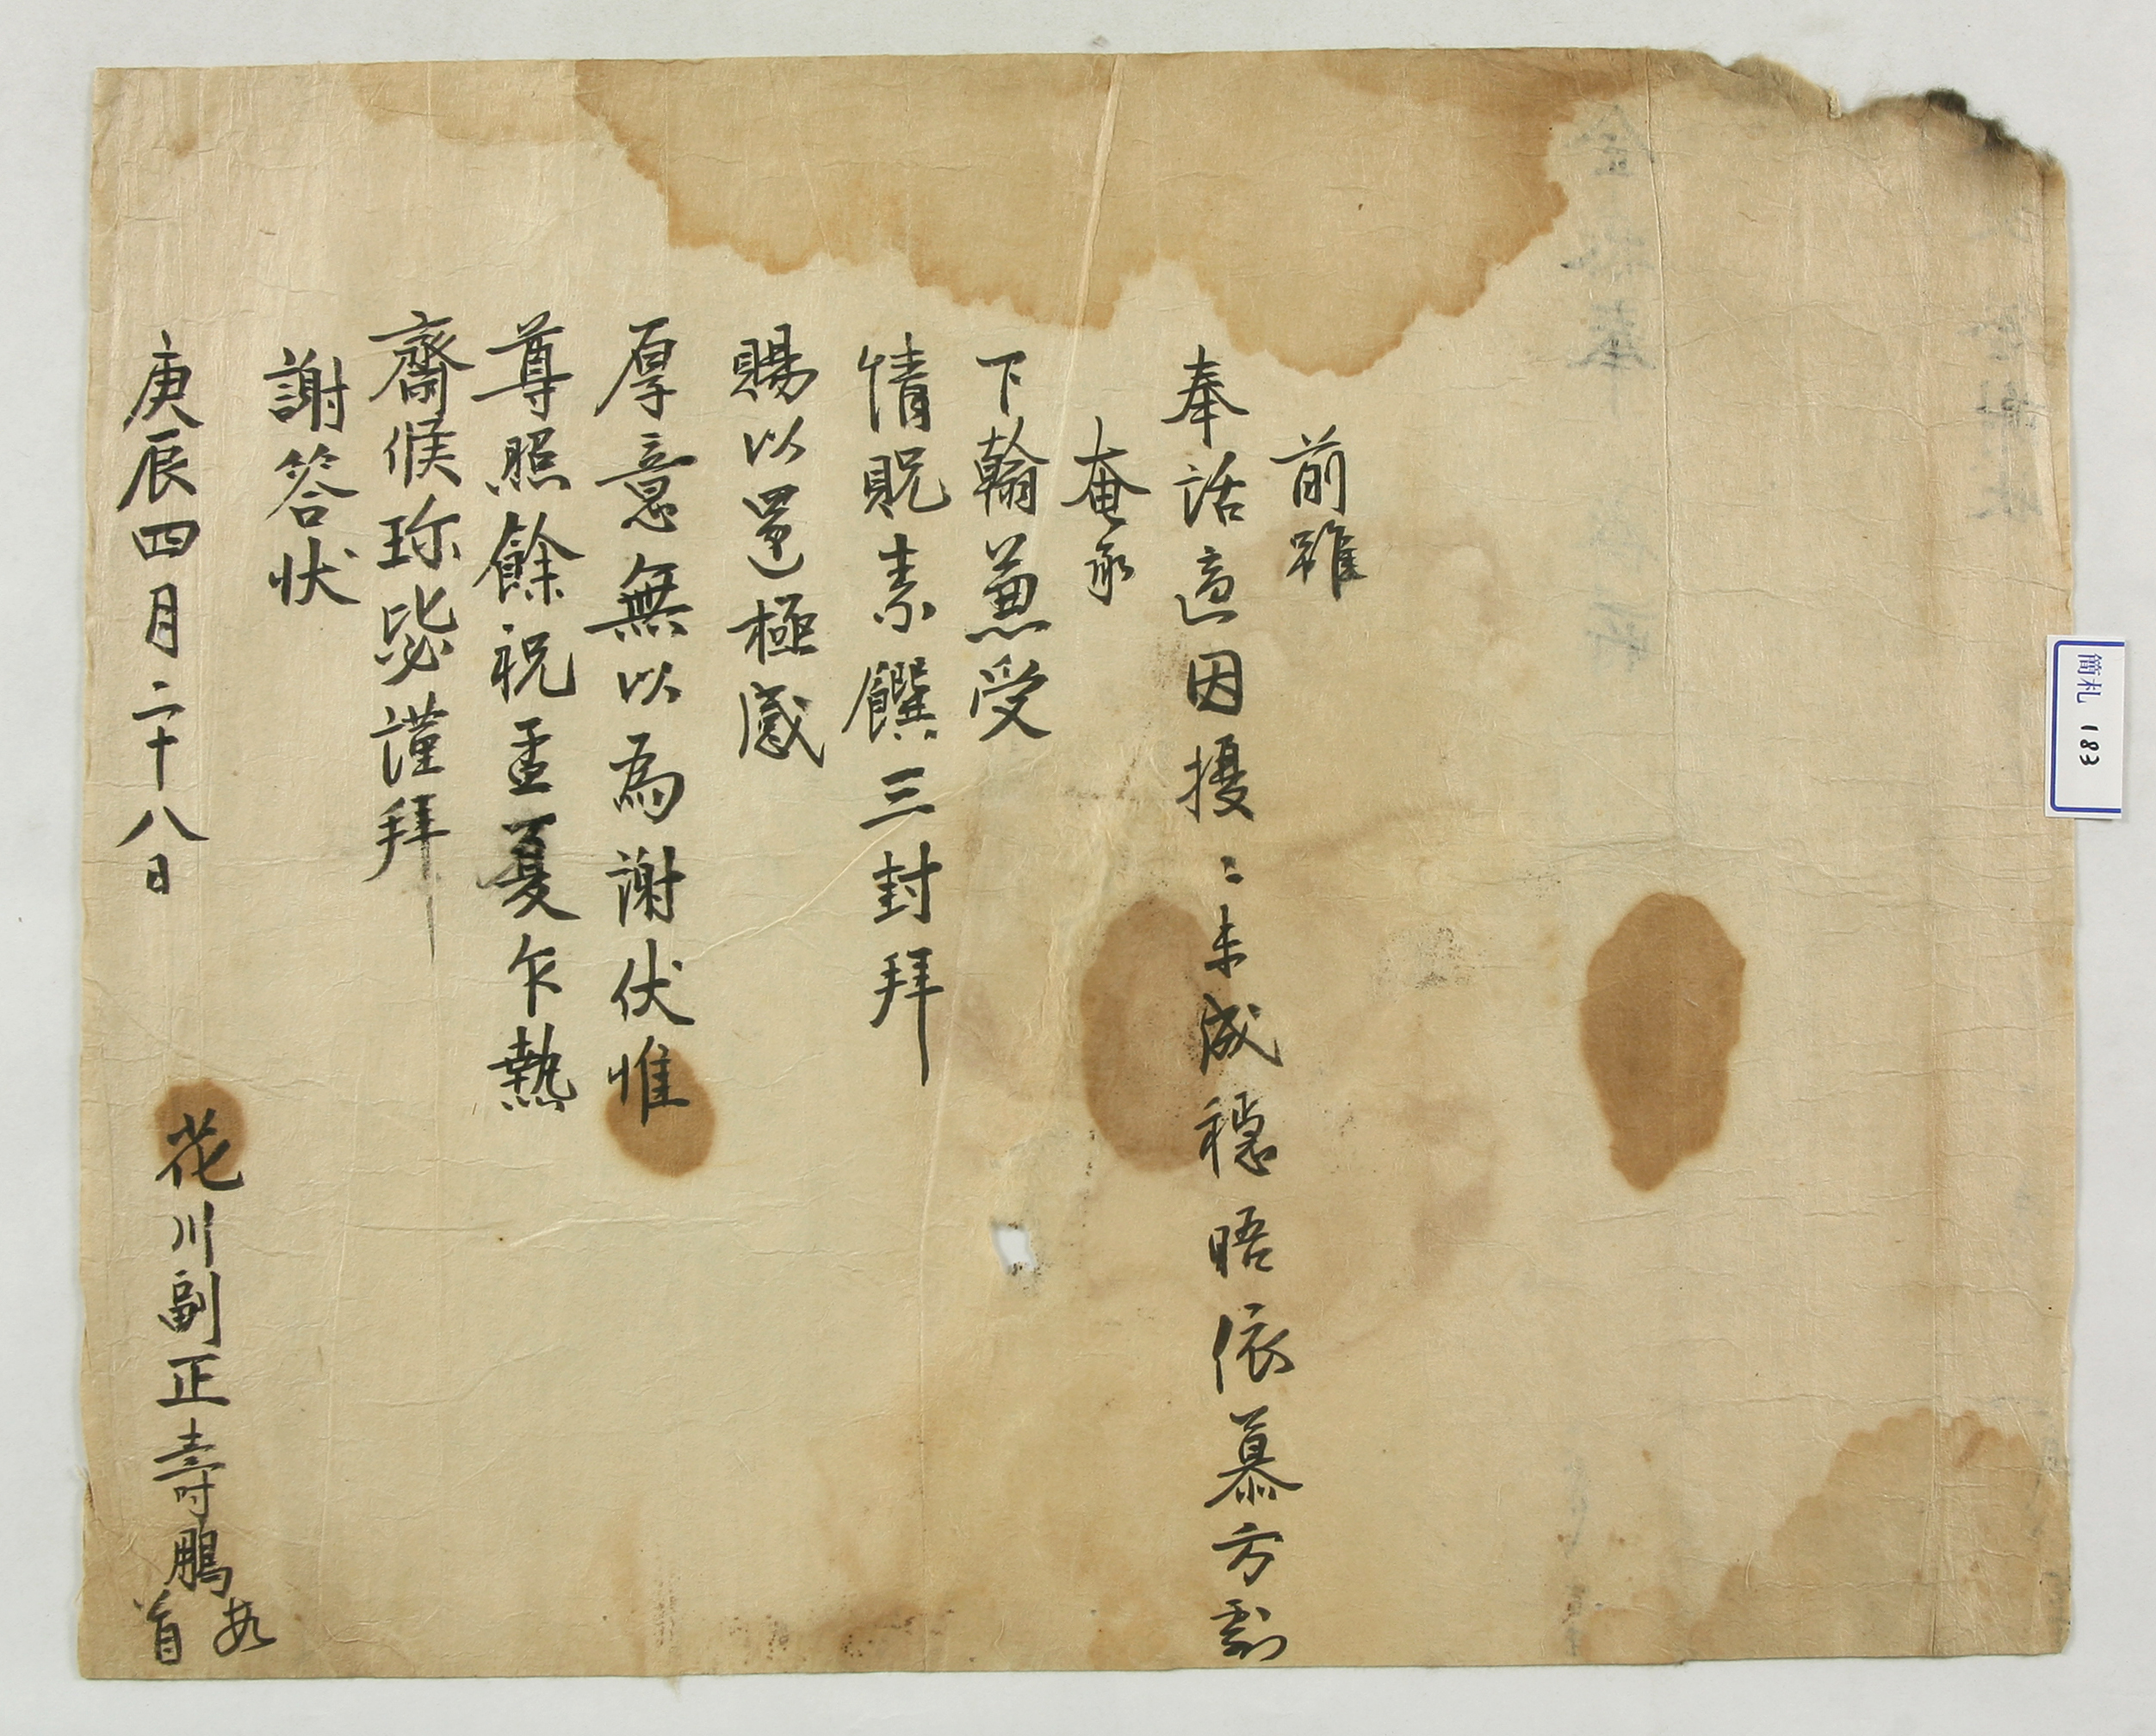 前雖
奉話適因擾〻未成穩晤依慕方劇
奄承
下翰兼受
情貺素饌三封拜
賜以還極感
厚意無以為謝伏惟
尊照餘祝孟夏乍熱
齋候珎毖謹拜
謝答狀
庚辰四月二十八日
花川副正壽鵬
頓首
簡札 183